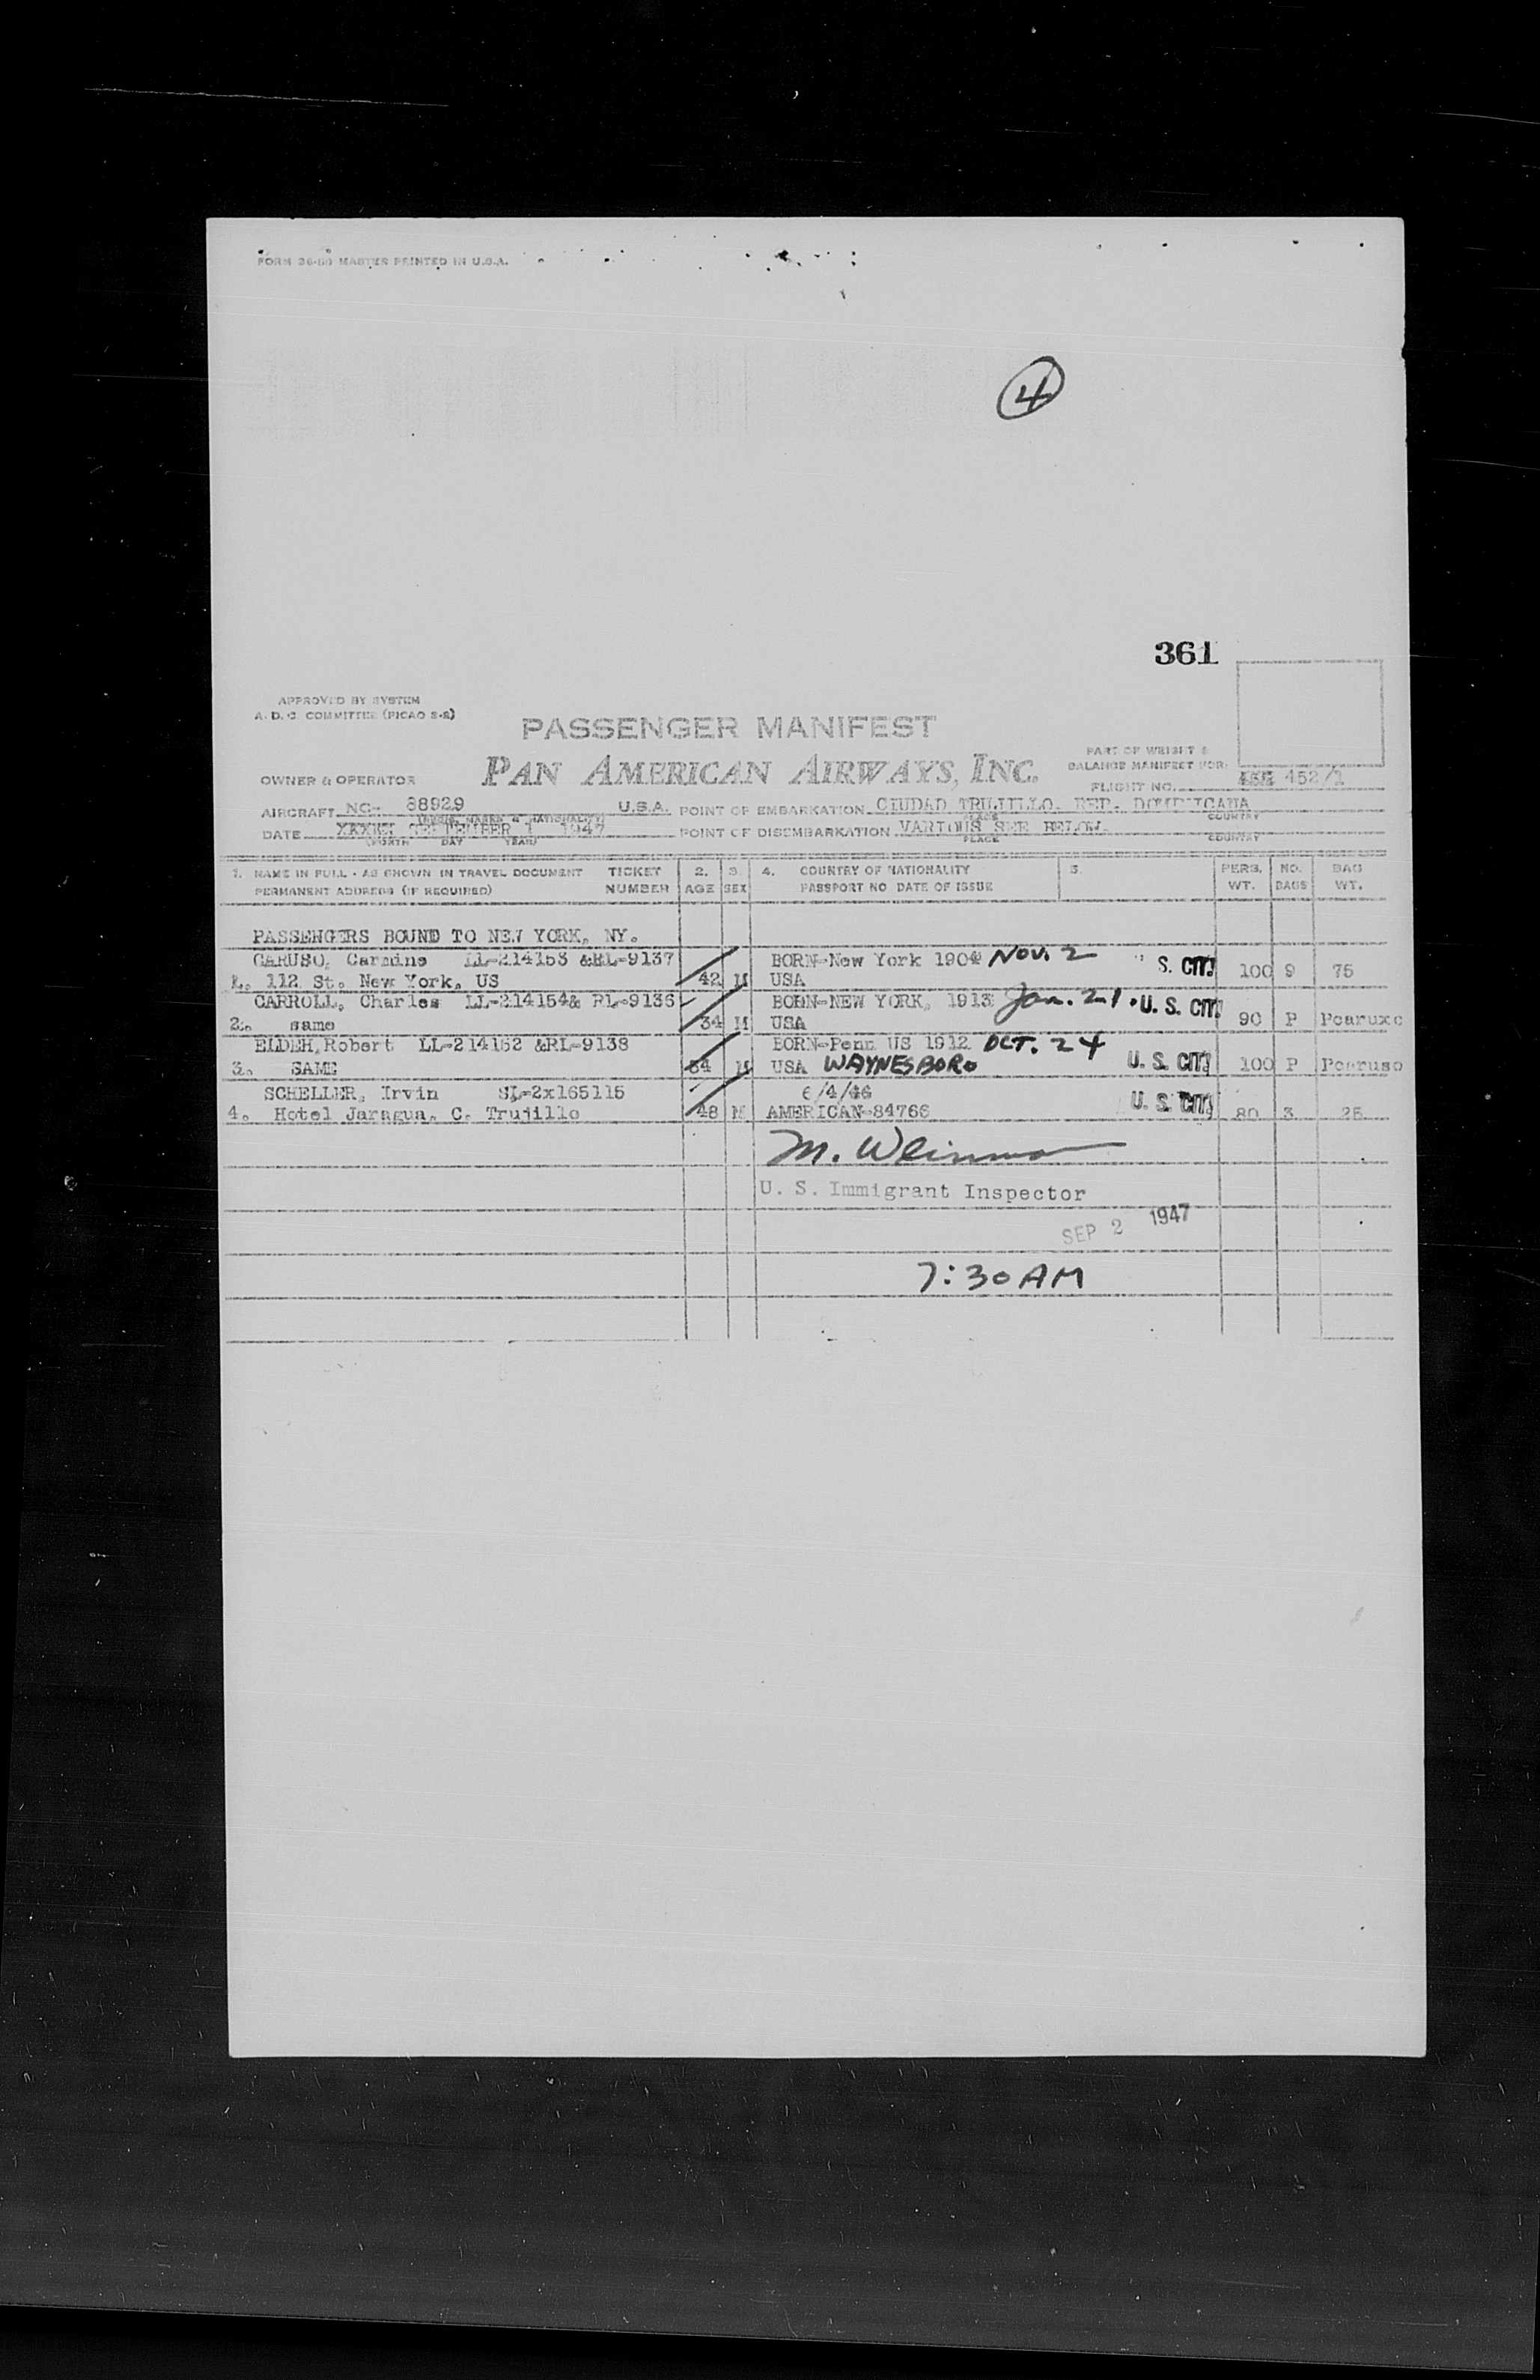 FORM 26-50 MASTER PRINTED IN U.S.A.
4
361
APPROVED BY SYSTEM
A. D. C. COMMITTEE (PICAO S-2)
PASSENGER MANIFEST
PART OF WEIGHT &
BALANCE MANIFEST FOR:
OWNER & OPERATOR PAN AMERICAN AIRWAYS, INC.
FLIGHT NO. 452/1
AIRCRAFT NC- 88929 U.S.A. POINT OF EMBARKATION CIUDAD TRUJILLO. REP. DOMINICANA
PLACE COUNTRY
DATE SEPTEMBER 1 1947 POINT OF DISEMBARKATION VARIOUS SEE BELOW.
(MONTH DAY YEAR) PLACE COUNTRY
1. NAME IN FULL - AS SHOWN IN TRAVEL DOCUMENT TICKET 2. 3. 4. COUNTRY OF NATIONALITY 5. PERS. NO. BAG
PERMANENT ADDRESS (IF REQUIRED) NUMBER AGE SEX PASSPORT NO DATE OF ISSUE WT. BAGS WT.
PASSENGERS BOUND TO NEW YORK, NY.
CARUSO, Carmine LL-214153 &RL-9137 BORN-New York 1904 NOV. 2 S. CIT.
1. 112 St. New York, US 42 M USA 100 9 75
CARROLL, Charles LL-214154& RL-9136 BORN-NEW YORK, 1913 Jan. 21. U. S. CIT.
2. same 34 M USA 90 P Pcaruxo
ELDEH, Robert LL-214152 &RL-9138 BORN-Penn US 1912 OCT. 24
3. SAME 34 M USA WAYNESBORO U. S. CIT. 100 P Pcaruso
SCHELLER, Irvin SL-2x165115 6/4/46 U. S. CIT.
4. Hotel Jaragua, C. Trujillo 48 M AMERICAN-84766 80 3 25
M. Weinman
U. S. Immigrant Inspector
SEP 2 1947
7:30 AM